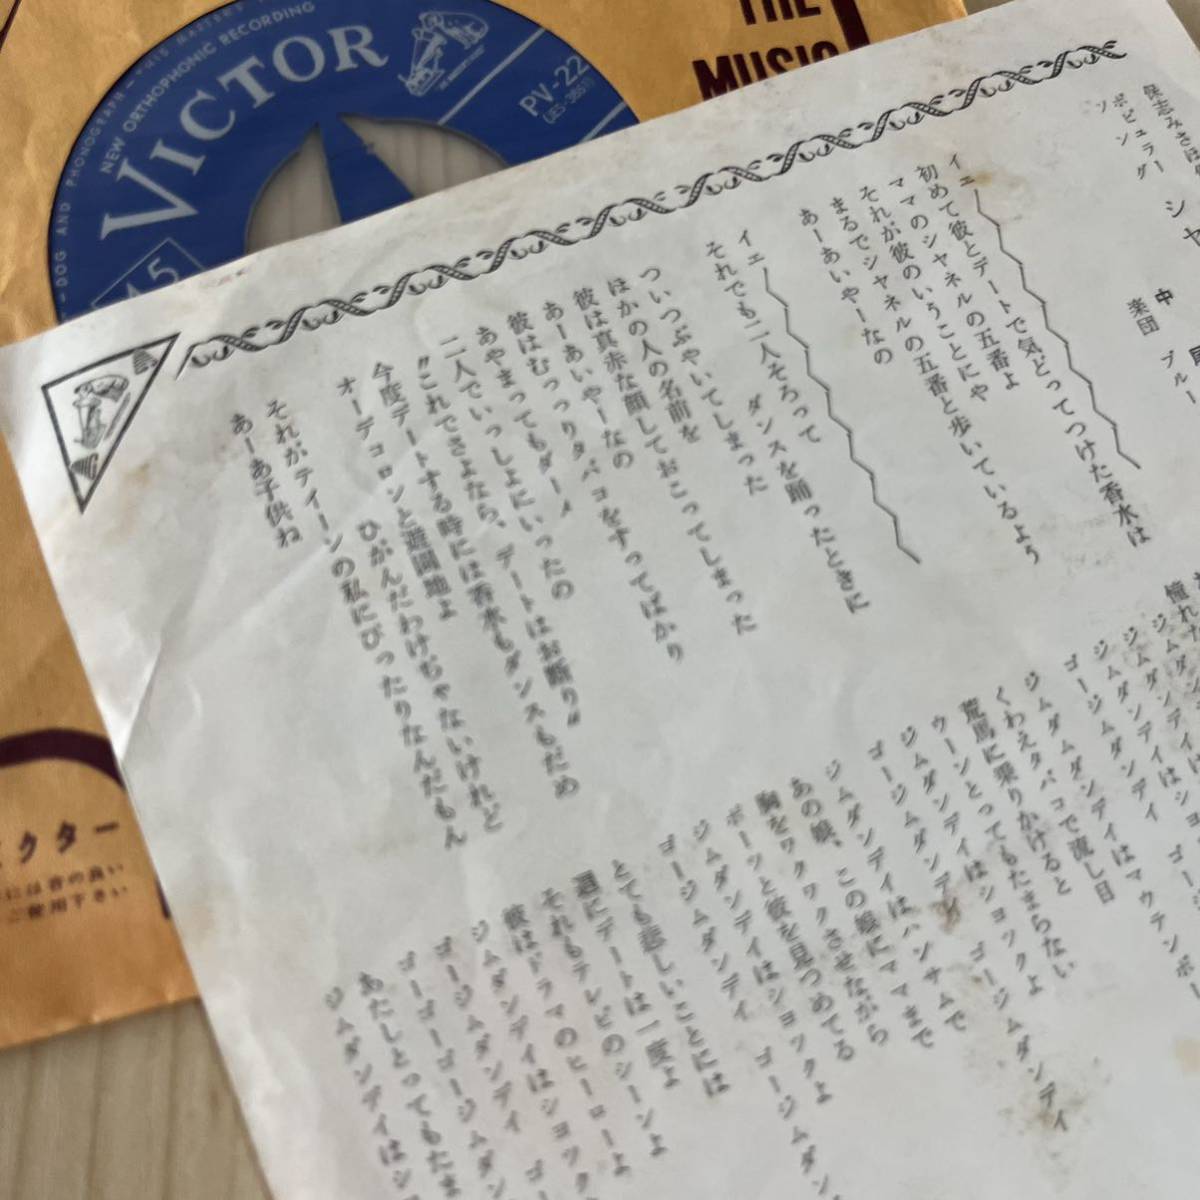 DOG AND PHONOGRAPH
NEW ORTHOPHONIC RECORDING
VICTOR
45
PV-22
(JES-3851)
THE
MUSIC
保志みさほ
ポピュラー
ソング
シャ
中
楽団
ブルー
イェー
初めて彼とデートで気どってつけた香水は
ママのシャネルの五番よ
それが彼のいうことにや
まるでシャネルの五番と歩いているよう
あーあいやーなの
イェー
それでも二人そろって
ダンスを踊ったときに
ついつぶやいてしまった
ほかの人の名前を
彼は真赤な顔しておこってしまった
あーあいやーなの
彼はむっつりタバコをすってばかり
あやまってもダーメ
二人でいっしよにいったの
“これでさよなら、デートはお断り”
今度デートする時には香水もダンスもだめ
オーデコロンと遊園地よ
ひがんだわけぢゃないけれど
それがティーンの私にぴったりなんだもん
あーあ子供ね
憧れ
ジムダンディは
ジムダンディはショック
ジムダンディ
ゴージムダンディ
ジムダムダンディはマウテンボー
くわえタバコで流し目
荒馬に乗りかけると
ウーンとってもたまらない
ジムダンディはショックよ
ゴージムダンディ
ゴージムダンディ
ジムダンディはハンサムで
あの娘、この娘にママまで
胸をワクワクさせながら
ボーッと彼を見つめてる
ジムダンディはショックよ
ゴージムダンディ
ゴージムダン
とても悲しいことには
週にデートは一度よ
それもテレビのシーンよ
彼はドラマのヒーローよ
ジムダンディはショック
ゴージムダンディ
ゴーゴーゴージムダン
あたしとってもたま
ジムダンディはシ
クター
には音の良い
ご使用下さい